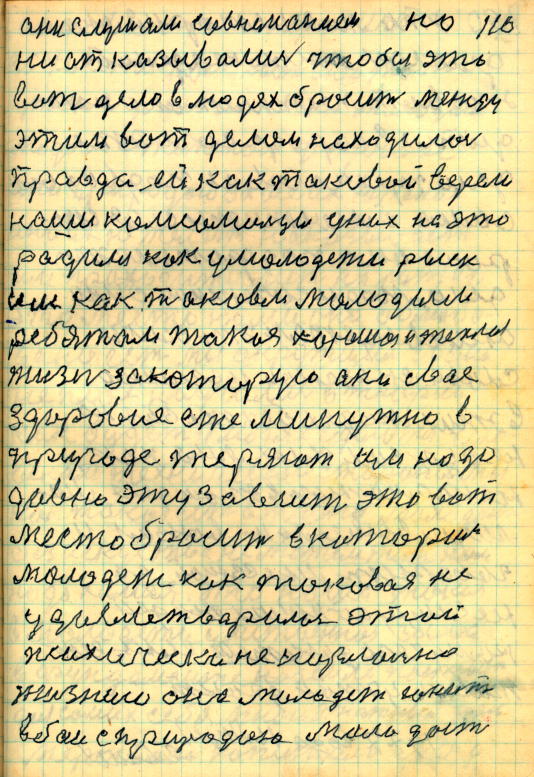 ани слушали совниманием но 116
ни атказывалися чтобы это
вот дело в людях бросит между
этим вот делом находился
правда ей как таковой верем
наши комсомольцы у них на это
радился как у молодежи риск
им как таковым молодым
ребятам такая хорошая и теплая
жизн закоторую ани свае
здоровие еже минутно в
природе теряют им надо
давно эту завасит это вот
место бросит в котором
молодеж как таковая не
удавлетварился этой
психически не нормально
жизнию она молодеж гонит
в бои с природою молодост